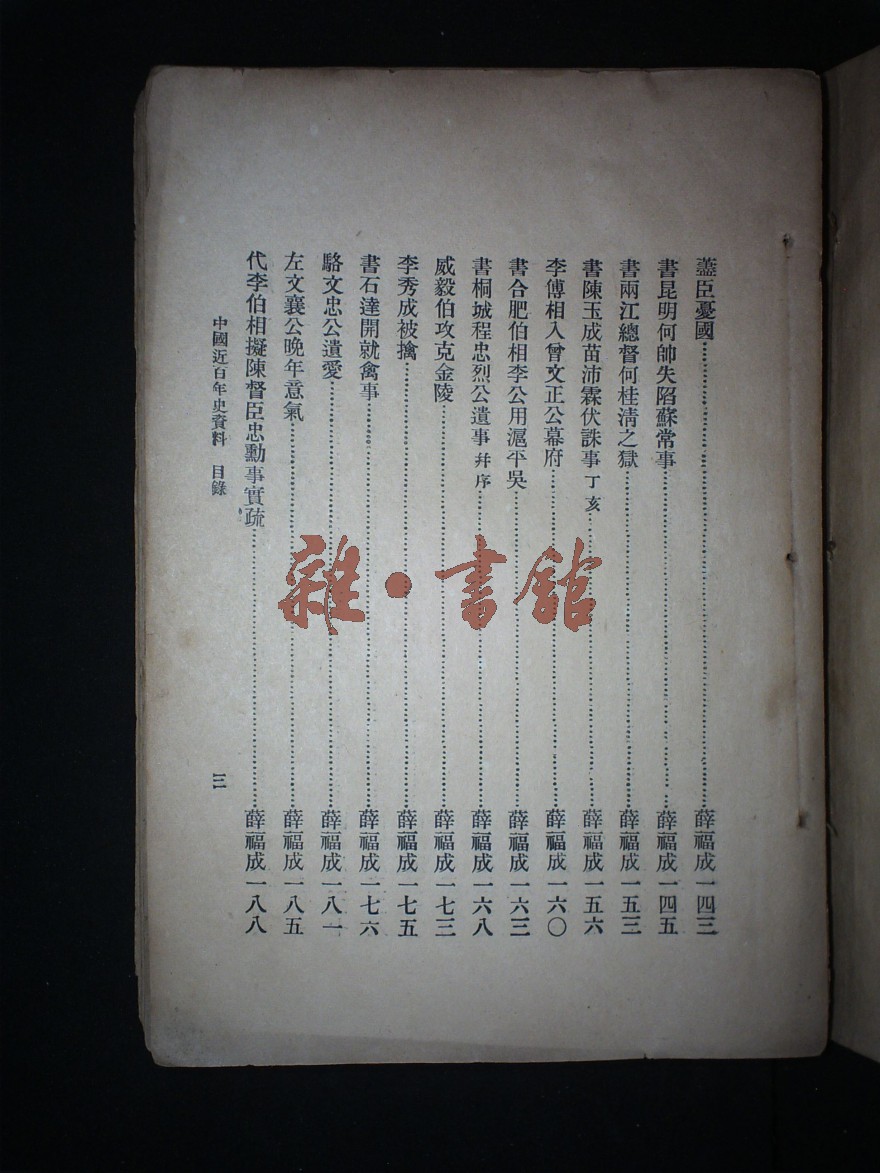 藎臣憂國……薛福成一四三
書昆明何帥失陷蘇常事……薛福成一四五
書兩江總督何桂淸之獄……薛福成一五三
書陳玉成苗沛霖伏誅事 丁亥……薛福成一五六
李傅相入曾文正公幕府……薛福成一六〇
書合肥伯相李公用滬平吳……薛福成一六三
書桐城程忠烈公遺事 幷序……薛福成一六八
威毅伯攻克金陵……薛福成一七三
李秀成被擒……薛福成一七五
書石達開就禽事……薛福成一七六
駱文忠公遺愛……薛福成一八一
左文襄公晚年意氣……薛福成一八五
代李伯相擬陳督臣忠勳事實疏……薛福成一八八
中國近百年史資料 目錄 三
雜·書館